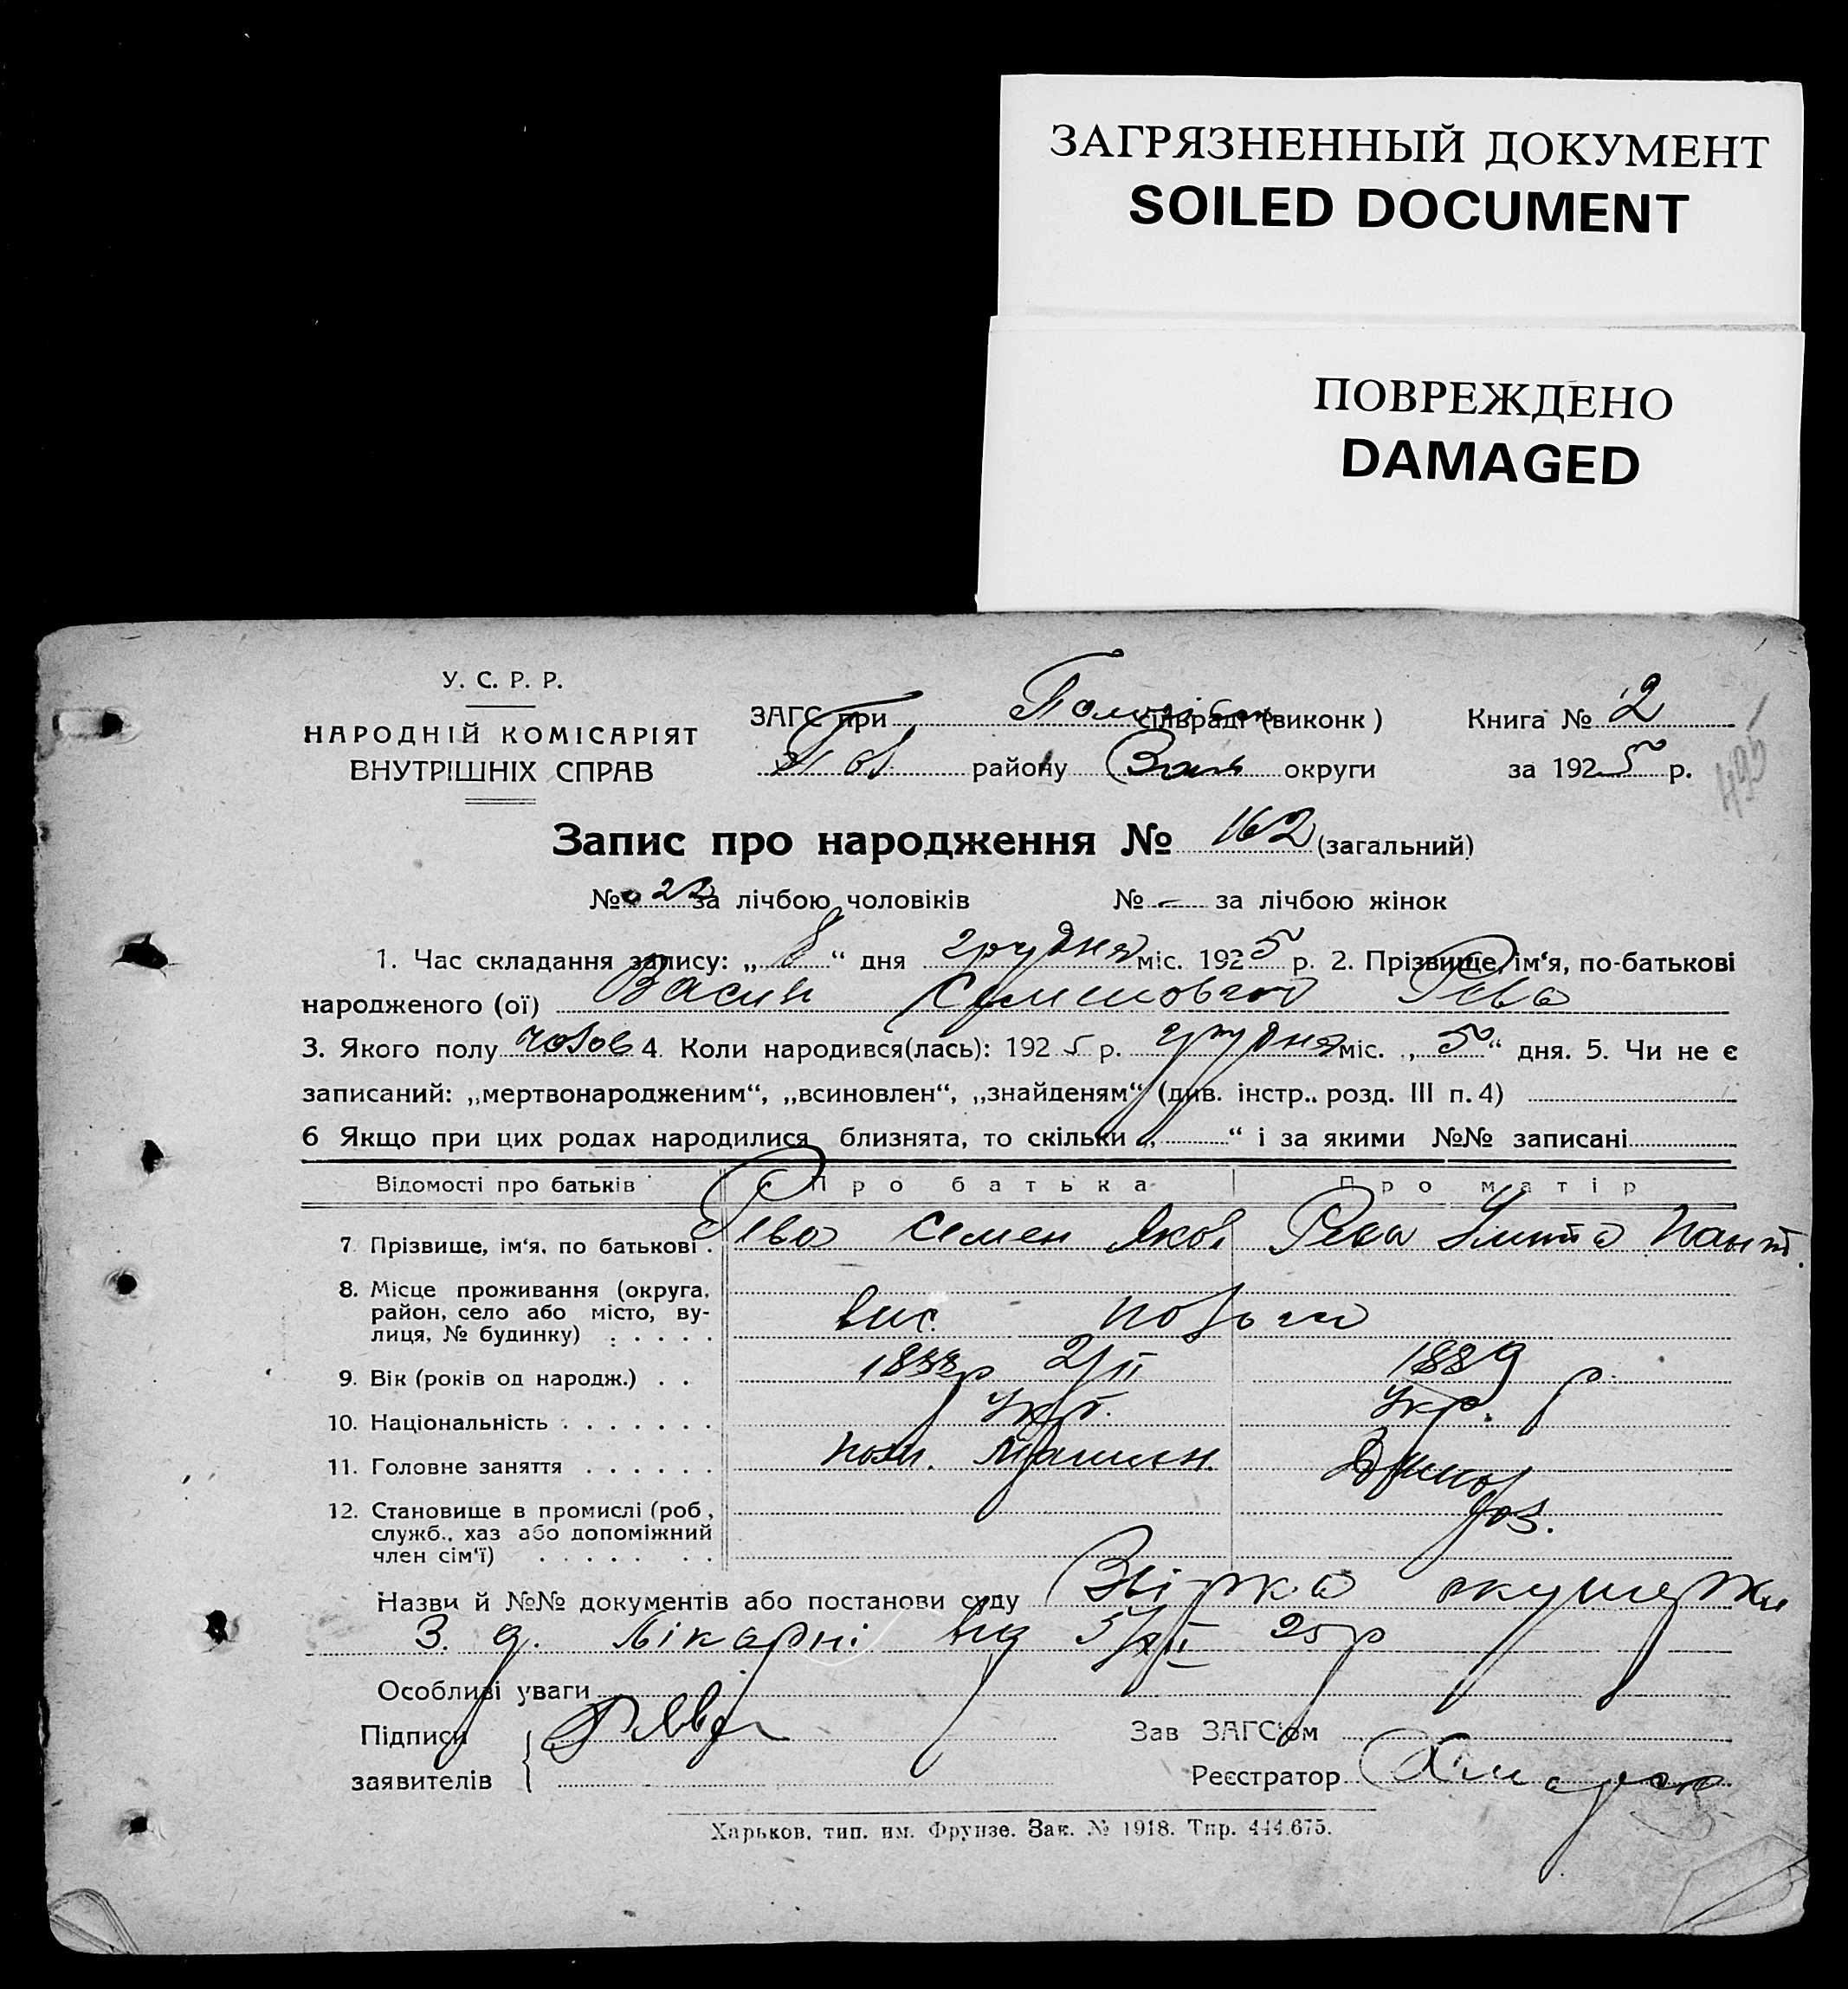 ЗАГРЯЗНЕННЫЙ ДОКУМЕНТ
SOILED DOCUMENT
ПОВРЕЖДЕНО
DAMAGED
У. С. Р. Р.
НАРОДНІЙ КОМІСАРІЯТ
ВНУТРІШНІХ СПРАВ
ЗАГС при сільраді (виконк) Книга № 2
Пол району Зап округи за 1925 р.
495
Запис про народження № 162 (загальний)
№ 22 за лічбою чоловіків № – за лічбою жінок
1. Час складання запису: „ 8 “ дня грудня міс. 1925 р. 2. Прізвище, ім‘я, по-батькові
народженого (ої) Васил Семенович Рева
3. Якого полу чолов 4. Коли народився(лась): 1925 р. грудня міс. „ 5 “ дня. 5. Чи не є
записаний: „мертвонародженим“, „всиновлен“, „знайденям“ (див. інстр.. розд. III п. 4)
6 Якщо при цих родах народилися близнята, то скільки „ “ і за якими №№ записані
Відомості про батьків Про батька Про матір
7. Прізвище, ім‘я, по батькові . Рева Семен Яков Рева Улита Пант.
8. Місце проживання (округа,
район, село або місто, ву-
лиця, № будинку) : . . . . вис. Пологи
9. Вік (років од народж.) . . 2/II 1889 р.
10. Національність . . . . . . . Укр. Укр.
11. Головне заняття . . . . . . пом. Машин. Домов
12. Становище в промислі (роб, гоз.
служб., хаз або допоміжний
член сім‘ї) . . . . . . .
Назви й №№ документів або постанови суду акушерки
З. д. лікарні від 5/XII 25 р
Особливі уваги
Підписи Рева Зав ЗАГС‘ом
заявителів Реєстратор
Харьков, тип. им. Фрунзе. Зак. № 1918. Тир. 444.675.